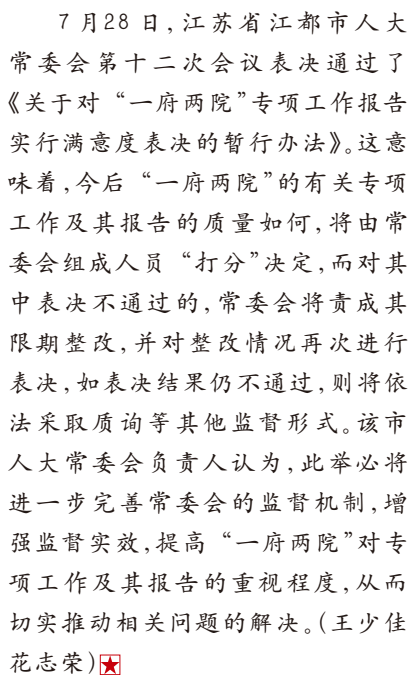 7月28日，江苏省江都市人大
常委会第十二次会议表决通过了
《关于对“一府两院”专项工作报告
实行满意度表决的暂行办法》。这意
味着，今后“一府两院”的有关专项
工作及其报告的质量如何，将由常
委会组成人员“打分”决定，而对其
中表决不通过的，常委会将责成其
限期整改，并对整改情况再次进行
表决，如表决结果仍不通过，则将依
法采取质询等其他监督形式。该市
人大常委会负责人认为，此举必将
进一步完善常委会的监督机制，增
强监督实效，提高“一府两院”对专
项工作及其报告的重视程度，从而
切实推动相关问题的解决。（王少佳
花志荣）